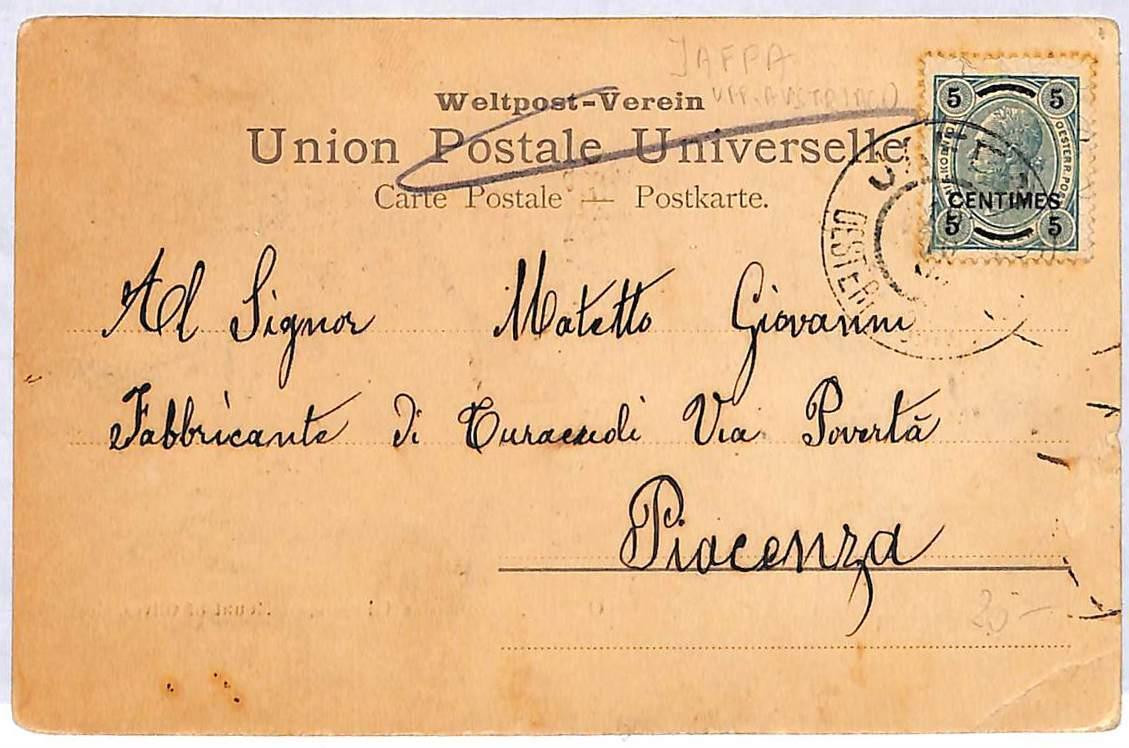 JAFFA
UFF. AUSTRIACO
Weltpost-Verein
Union Postale Universelle
Carte Postale — Postkarte.
5 5
CENTIMES
5 5
OESTERR. POST
JAFFA
OESTERR
Al Signor Matetto Giovanni
Fabbricante di Turaccidi Via Povertà
Piacenza
25 —